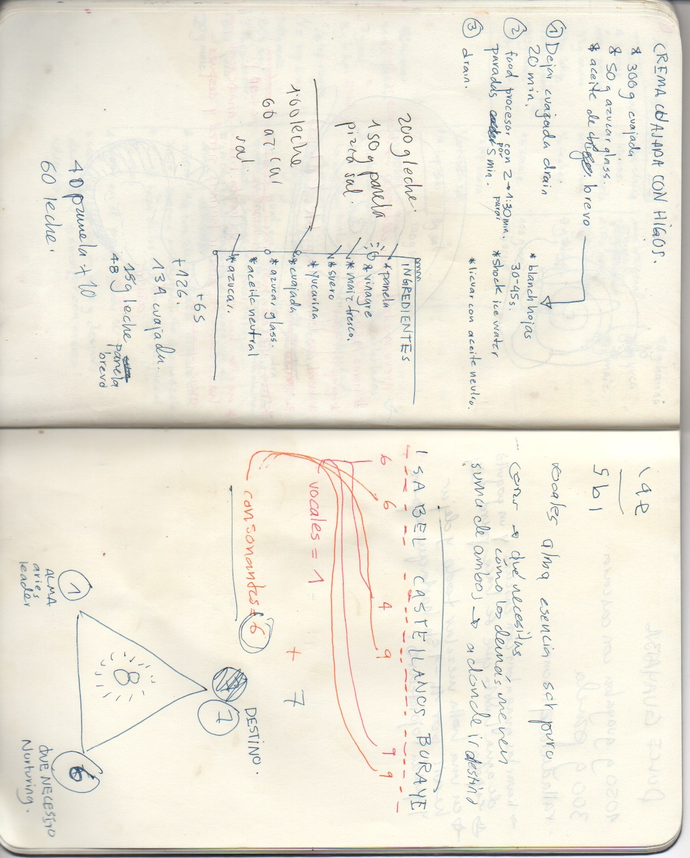 CREMA CUAJADA CON HIGOS.
* 300g cuajada
* 50g azucar glass.
* aceite de brevo
① Dejar cuajada drain
20 min.
② food procesor con 2 → 1:30 min.
paradas por 5 min.
③ drain.
* blanch hojas
30-45s.
* shock ice water
* licuar con aceite neutro.
200g leche.
150g panela
pizca sal.
160 leche
60 azucar
sal.
INGREDIENTES
* panela
* vinagre
* maiz fresco.
* suero
* Yucarina
* cuajada
* azucar glass.
* aceite neutral
* azucar.
+65
+126.
134 cuajada.
159 leche
48 panela
brevo
40 panela + 10
60 leche.
vocales alma esencia ser puro
cons → qué necesitas
y como los demás me ven
suma de ambos → a donde ir destino
ISABEL CASTELLANOS BURAYE
6 6 4 9 9 9
vocales = 1
consonantes = 6
+ 7
DESTINO.
7
8
1
ALMA
aries
leader
6
QUÉ NECESITO
Nurturing.